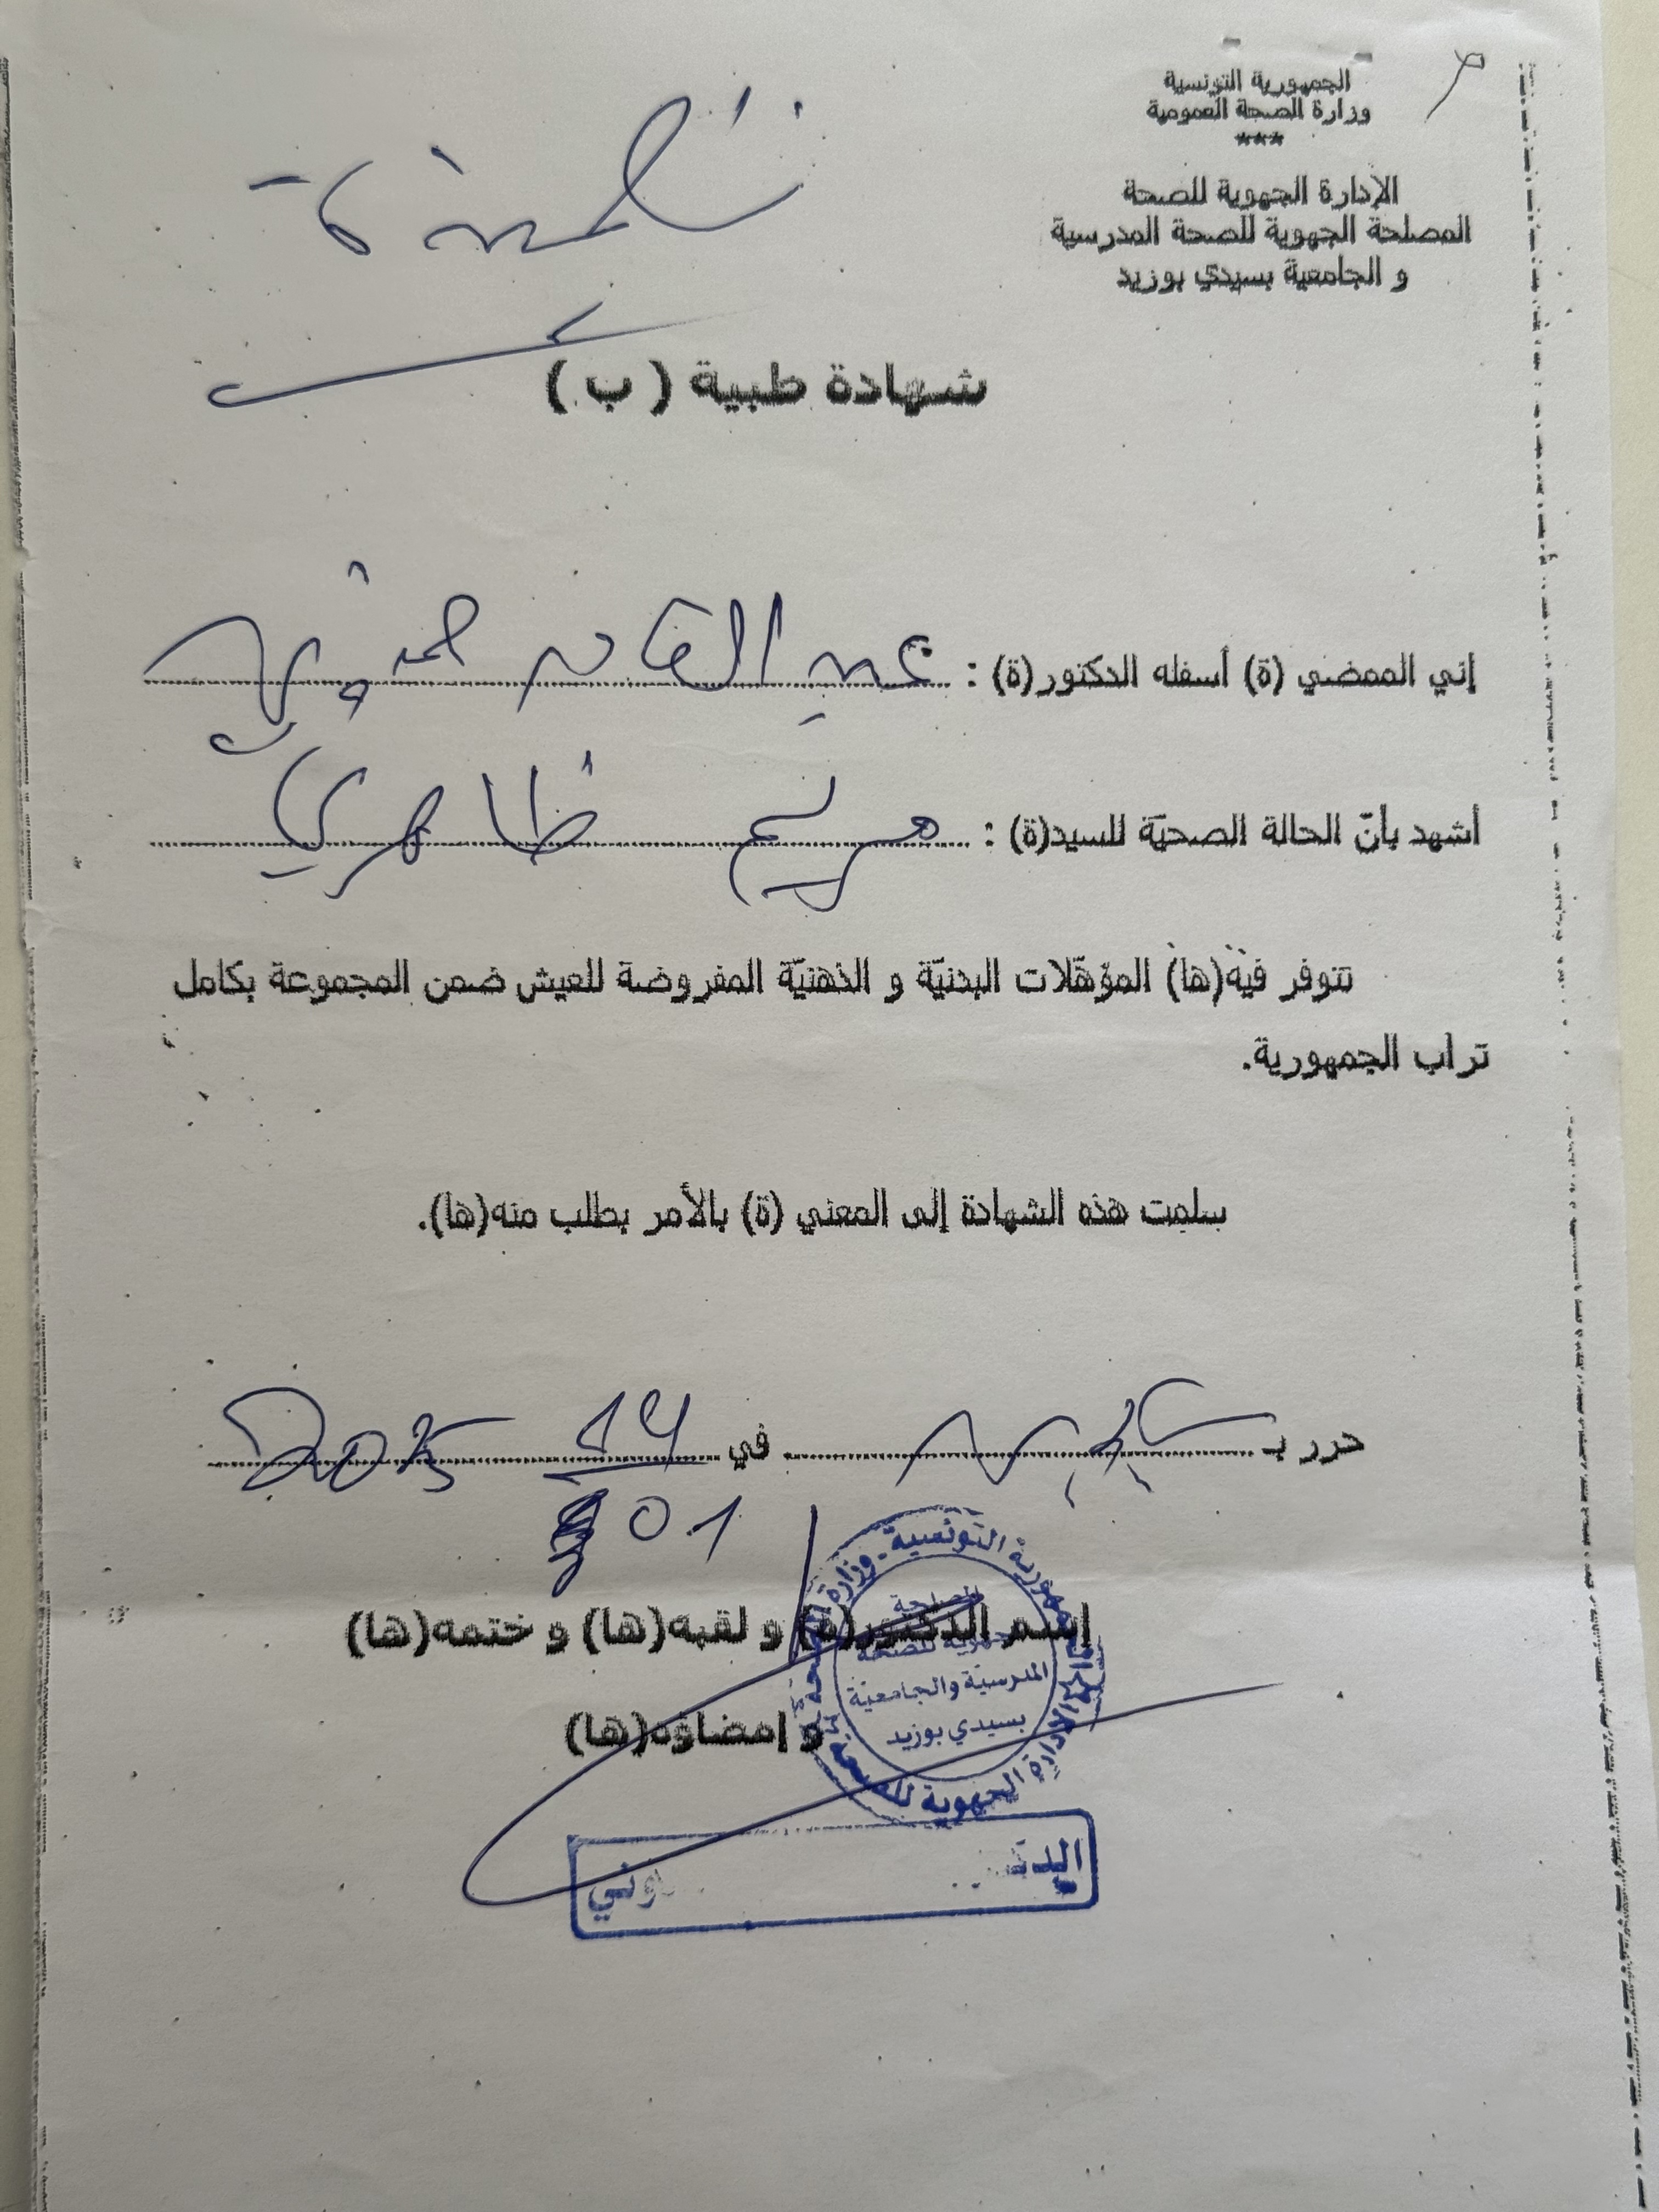 الجمهورية التونسية
وزارة الصحة العمومية
***
الإدارة الجهوية للصحة
المصلحة الجهوية للصحة المدرسية
و الجامعية بسيدي بوزيد
شهادة طبية ( ب )
إني الممضي (ة) أسفله الدكتور(ة) : عبد القادر
أشهد بأنّ الحالة الصحيّة للسيد(ة) : مريم ظاهري
تتوفر فيه(ها) المؤهّلات البدنيّة و الذهنيّة المفروضة للعيش ضمن المجموعة بكامل
تراب الجمهورية.
سلمت هذه الشهادة إلى المعني (ة) بالأمر بطلب منه(ها).
حرر بـ في 14 2025
01
إسم الدكتور(ة) و لقبه(ها) و ختمه(ها)
و إمضاؤه(ها)
الجمهورية التونسية - وزارة الصحة
الإدارة الجهوية للصحة
المصلحة
الجهوية للصحة
المدرسيّة والجامعيّة
بسيدي بوزيد